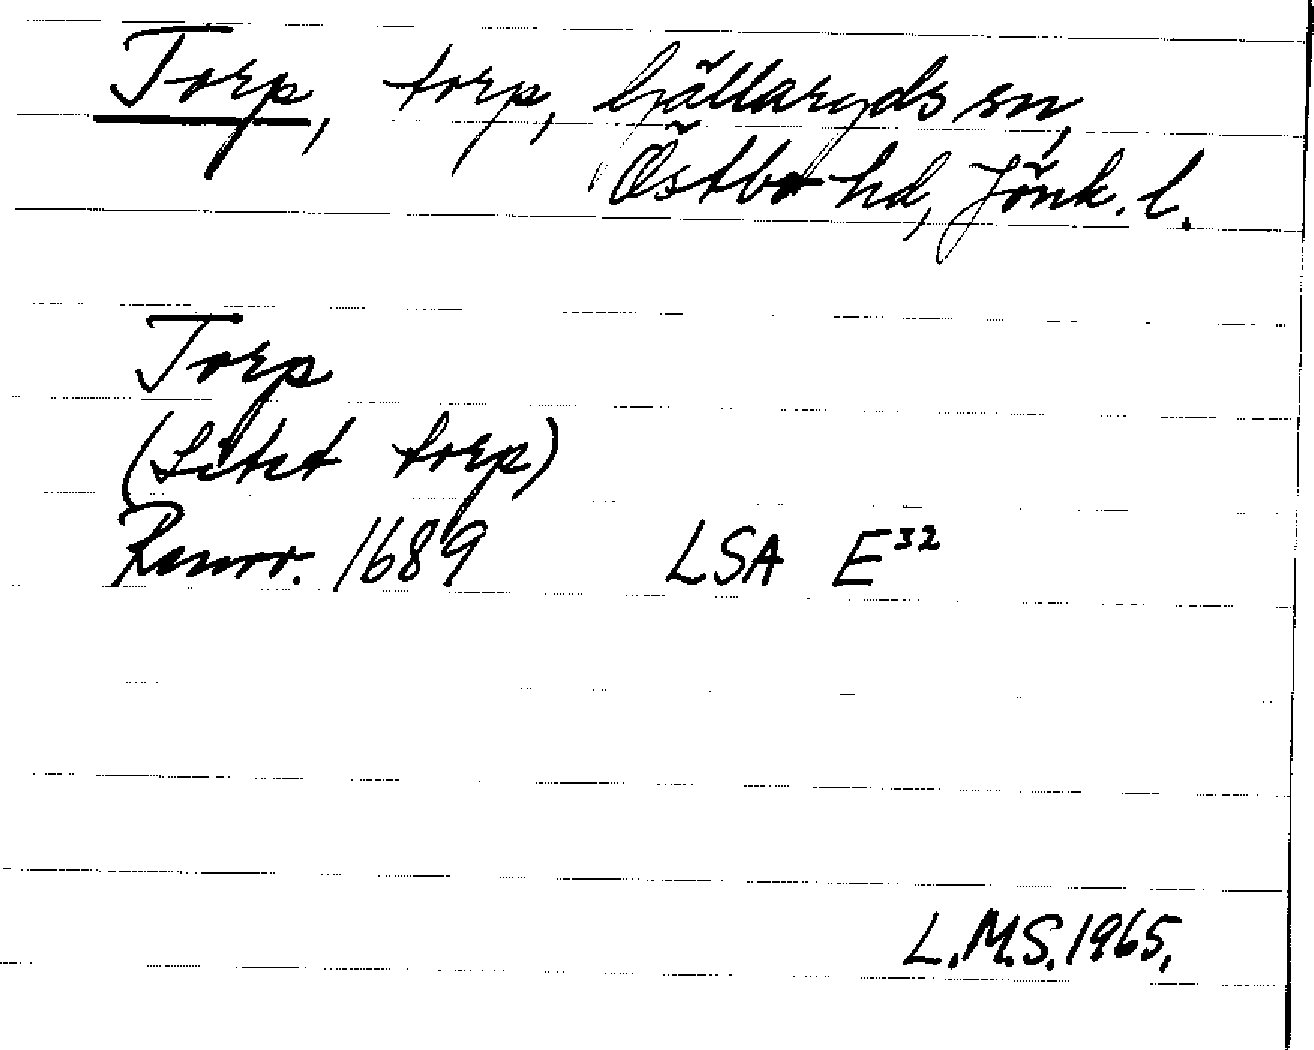 Torp, torp, Gällaryds sn,
Östbo hd, Jönk. l.
Torp
(Litet torp)
Renov. 1689 LSA E³²
L.M.S. 1965.